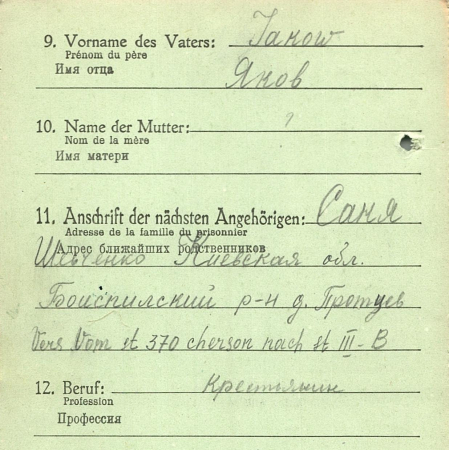 9. Vorname des Vaters: Jakow
Prénom du père
Имя отца Яков
10. Name der Mutter: ?
Nom de la mère
Имя матери
11. Anschrift der nächsten Angehörigen: Саня
Adresse de la famille du prisonnier
Адрес ближайших родственников
Шевченко Киевская обл.
Бориспилский р-н д. Процев
Vers Vom st 370 cherson nach st III-B
12. Beruf: Крестьянин
Profession
Профессия